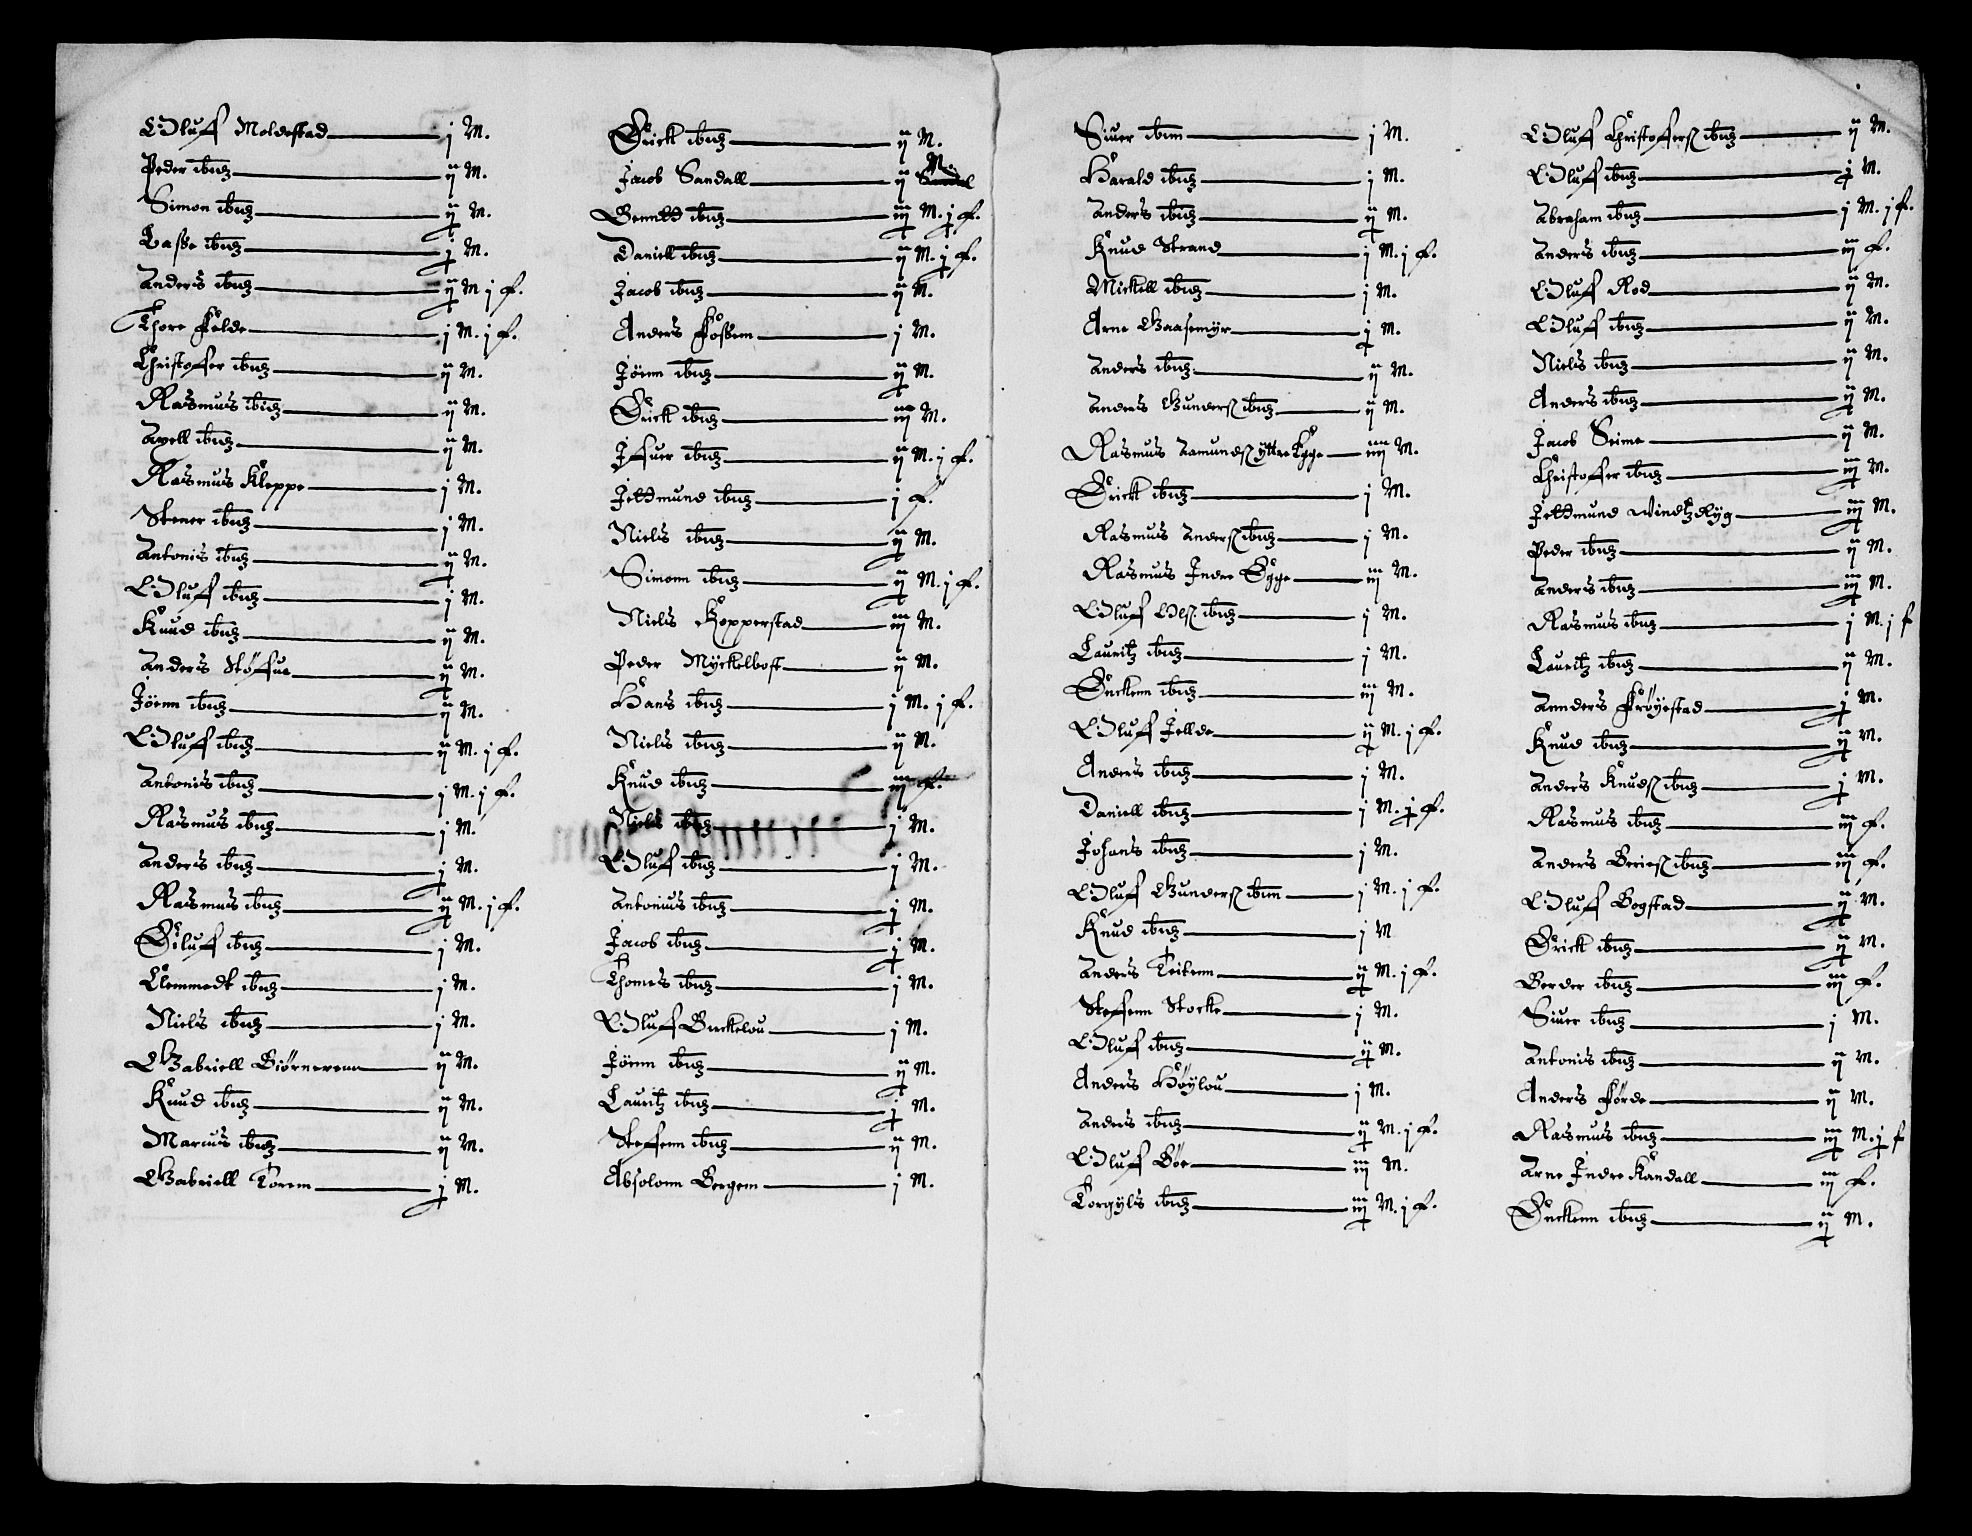 Oluff Moldestad j M.
Peder ibid ij M.
Simon ibid ij M.
Lasse ibid j M.
Anders ibid ij M j f.
Thore Felde j M. j f.
Christoffer ibid ij M.
Rasmus ibid ij M.
Axell ibid ij M.
Rasmus Kleppe j M.
Stener ibid j M.
Antonis ibid ij M.
Oluff ibid j M.
Knud ibid ij M.
Anders Støffue ij M.
Jörenn ibid ij M.
Oluff ibid ij M. j f.
Antonis ibid j M. j f.
Rasmus ibid j M.
Anders ibid j M.
Rasmus ibid ij M. j f.
Eiluff ibid j M.
Clemmedt ibid j M.
Niels ibid j M.
Gabriell Biörnereim ij M.
Knud ibid ij M.
Marcus ibid ij M.
Gabriell Torem j M.
Erick ibid ij M.
Jacob Sandall ij M.
Benndt ibid iij M. j f.
Daniell ibid ij M. j f.
Jacob ibid ij M.
Anders Fossem j M.
Jörenn ibid ij M.
Erick ibid iij M.
Iffuer ibid ij M. j f.
Jettmund ibid j f.
Niels ibid ij M.
Simonn ibid ij M. j f.
Niels Kopperstad iij M.
Peder Myckelbost ij M.
Hans ibid j M. j f.
Niels ibid ij M.
Knud ibid iij f.
Niels ibid j M.
Oluff ibid j M.
Antonius ibid j M.
Jacob ibid j M.
Thomes ibid j M.
Oluff Birckelou j M.
Jörenn ibid ij M.
Lauritz ibid j M.
Steffenn ibid ij M.
Absolonn Bergem j M.
Siuer ibim j M.
Harald ibid j M.
Anders ibid ij M.
Knud Strand j M. j f.
Mickell ibid j M.
Arne Gaasemyr j M.
Anders ibid ij M.
Anders Gunders ibid ij M.
Rasmus Aamunds yttre Egge iiij M.
Erick ibid j M.
Rasmus Anders ibid j M.
Rasmus Indre Egge iij M.
Oluff Ols ibid j M.
Lauritz ibid j M.
Encken ibid iij M.
Oluff Jellde ij M. j f.
Anders ibid j M.
Daniell ibid j M. j f.
Johans ibid j M.
Oluff Gunders ibim j M. j f.
Knud ibid j M
Anders Teitenn ij M. j f.
Steffenn Stocke j M.
Oluff ibid ij M.
Anders Höylou j M.
Anders ibid ij M. j f.
Oluff Böe iij M.
Torgyls ibid iij M. j f.
Oluff Christoffers ibid ij M.
Oluff ibid j M.
Abraham ibid j M. j f.
Anders ibid iij f.
Oluff Rod ij M.
Oluff ibid ij M.
Niels ibid ij M.
Anders ibid ij M.
Jacob Seime ij M.
Christoffer ibid iij M.
Jettmund Windtzryg iij M.
Peder ibid ij M.
Anders ibid iij M.
Rasmus ibid j M. j f
Lauritz ibid ij M.
Annders Frøyestad j M.
Knud ibid ij M.
Anders Knuds ibid j M.
Rasmus ibid iij f.
Anders Beries ibid iij f.
Oluff Bogstad ij M.
Erick ibid ij M.
Berder ibid iij f.
Siuer ibid j M.
Antonis ibid ij M.
Anders Førde ij M.
Rasmus ibid iij M. j f
Arne Indre Kandall iij f.
Enckenn ibid ij M.